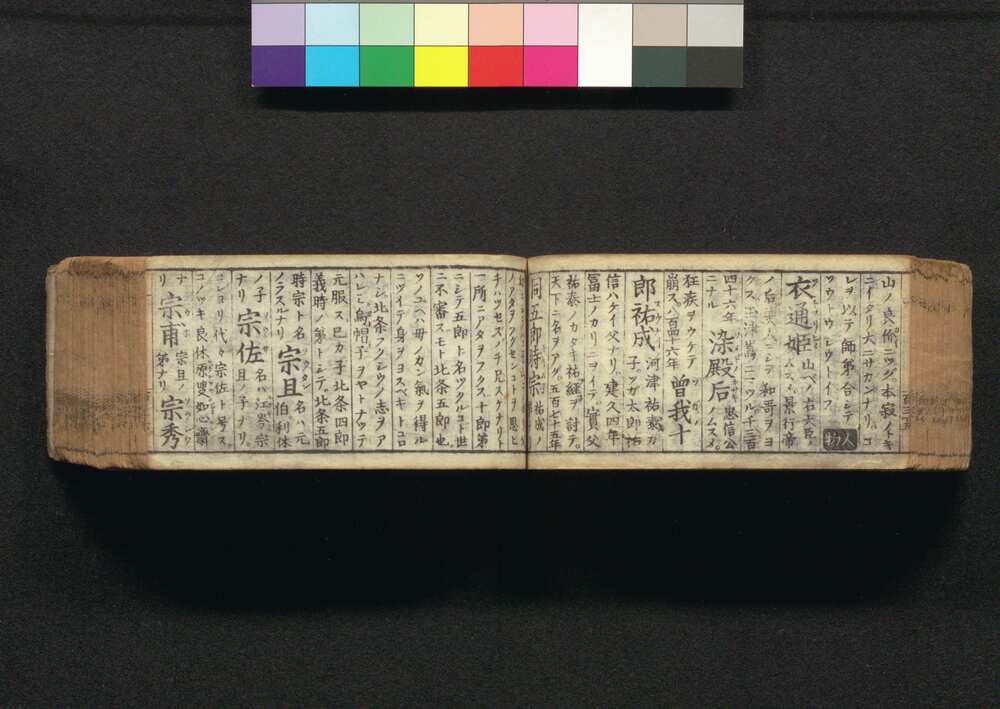 山ノ良偷ニツグ本寂イイキ
ニイタリ大ニサカンナリ。コ
レヲ以テ師第合シテ
ソウトウシウトイフ
人物
衣通姫 山ベノ右大臣ノ
ムスメ。景行帝
ノ后 ニシテ和哥ヲヨ
クス玉津嶋ニニツル千三百
四十六年 染殿后 忠信公
ニナル ノムスメ。
狂疾ヲウケテ
崩ス八百四十六年 曽我十
郎祐成 河津祐泰ガ
子ソガ太郎祐
信ハケイ父ナリ建久四年
冨士ノカリニヲイテ實父
祐泰ノカタキ祐経ヲ討テ。
天下ニ名ヲアグ五百七十五年
同五郎時宗 祐成ノ
一所ニソタヲフクス十郎第
ニシテ五郎ト名ツクルコト世
ニ不審スモト北条五郎也
ソノユヘハ母ノカン氣ヲ得ル
ニツイテ身ヲヨスベキトコロ
ナシ北条フクシウノ志ヲア
ハレミ烏帽子ヲヤトナツテ
元服ス巳カ子北条四郎
義時ノ第トシテ北条五郎
時宗ト名
ノラスルナリ 宗旦 名ハ元
伯利休
ノ子
ナリ 宗佐 名ハ江岑宗
旦ノ子ナリ。
コレヨリ代々宗佐ト号ス
コノツキ良休原叟如心齋
ナ
リ 宗甫 宗旦ノ
第ナリ 宗秀